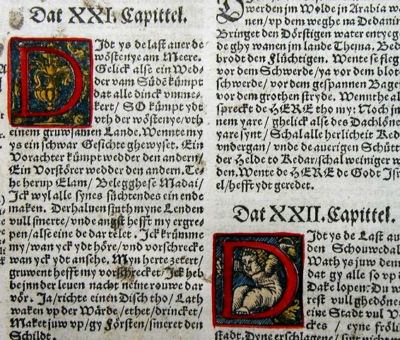 Dat XXI. Capittel.
DIdt ys de last auer de
wöstenye am Meere.
Gelick alse ein Wed=
der vam Süde kümpt
dat alle dinck vmme=
kert/ SO kümpt ydt
vth der wöstenye/vth
einem gruwsamen Lande. Wente my
ys ein schwar Gesichte ghewyset. Ein
Vorachter kümpt wedder den andern/
Ein Vorstörer wedder den andern. Te=
he herup Elam/ Belegghese Madai/
Ick wyl alle synes süchtendes ein ende
maken. Derhaluen synth myne Lenden
vull smerte/ vnde angst hefft my ergre=
pen/alse eine de dar telt. Ick krümme
my/wan yck ydt höre/ vnd vorschrecke
wan yck ydt ansehe. Myn herte zetert/
gruwent hefft my vorschrecket. Ick heb=
be jnn der leuen nacht neine rouwe dar
vör. Ja/richte einen Disch tho/ Lath
waken vp der Warde/ ethet/drincket/
Maket juw vp/gy Försten/smeret den
Schildt.
werden jm Wolde jn Arabia w
nen/ vp dem weghe na Dedanim
Bringet den Dörstigen water entyeg
de ghy wanen jm lande Thema. Bed
brodt den Flüchtigen. Wente se fleg
vor dem Schwerde/ya vor dem blot
schwerde/ vor dem gespannen Bage
vor dem groten stryde. Wenthe al
spreckt de HERE tho my: Noch jn
nem yare/ ghelick alse des Dachlöne
yare synt/ Schal alle herlicheit Ked
vndergan/ vnde de auerigen Schütt
de Helde to Kedar/schal weiniger w
den. Wente de HERE de Godt Isr
el/hefft ydt geredet.
Dat XXII. Capittel.
DIdt ys de Last au
den Schouwedal
Wath ys juw dem
dat gy alle so vp d
Dake lopen: Du w
rest vull ghedönes
eine Stadt vul v
ckes/ eyne fröli
stadt. Dyne erschlagene/ synt nicht m